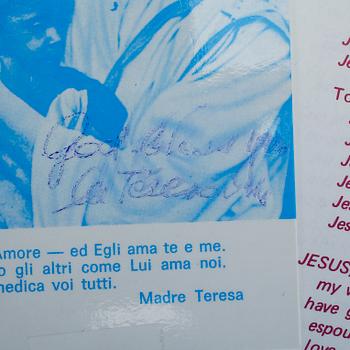 God bless you
la Teresa mc
Amore — ed Egli ama te e me.
o gli altri come Lui ama noi.
nedica voi tutti.
Madre Teresa
J
Je
To
J
J
Je
Je
Jes
JESUS,
my
have g
espou
love